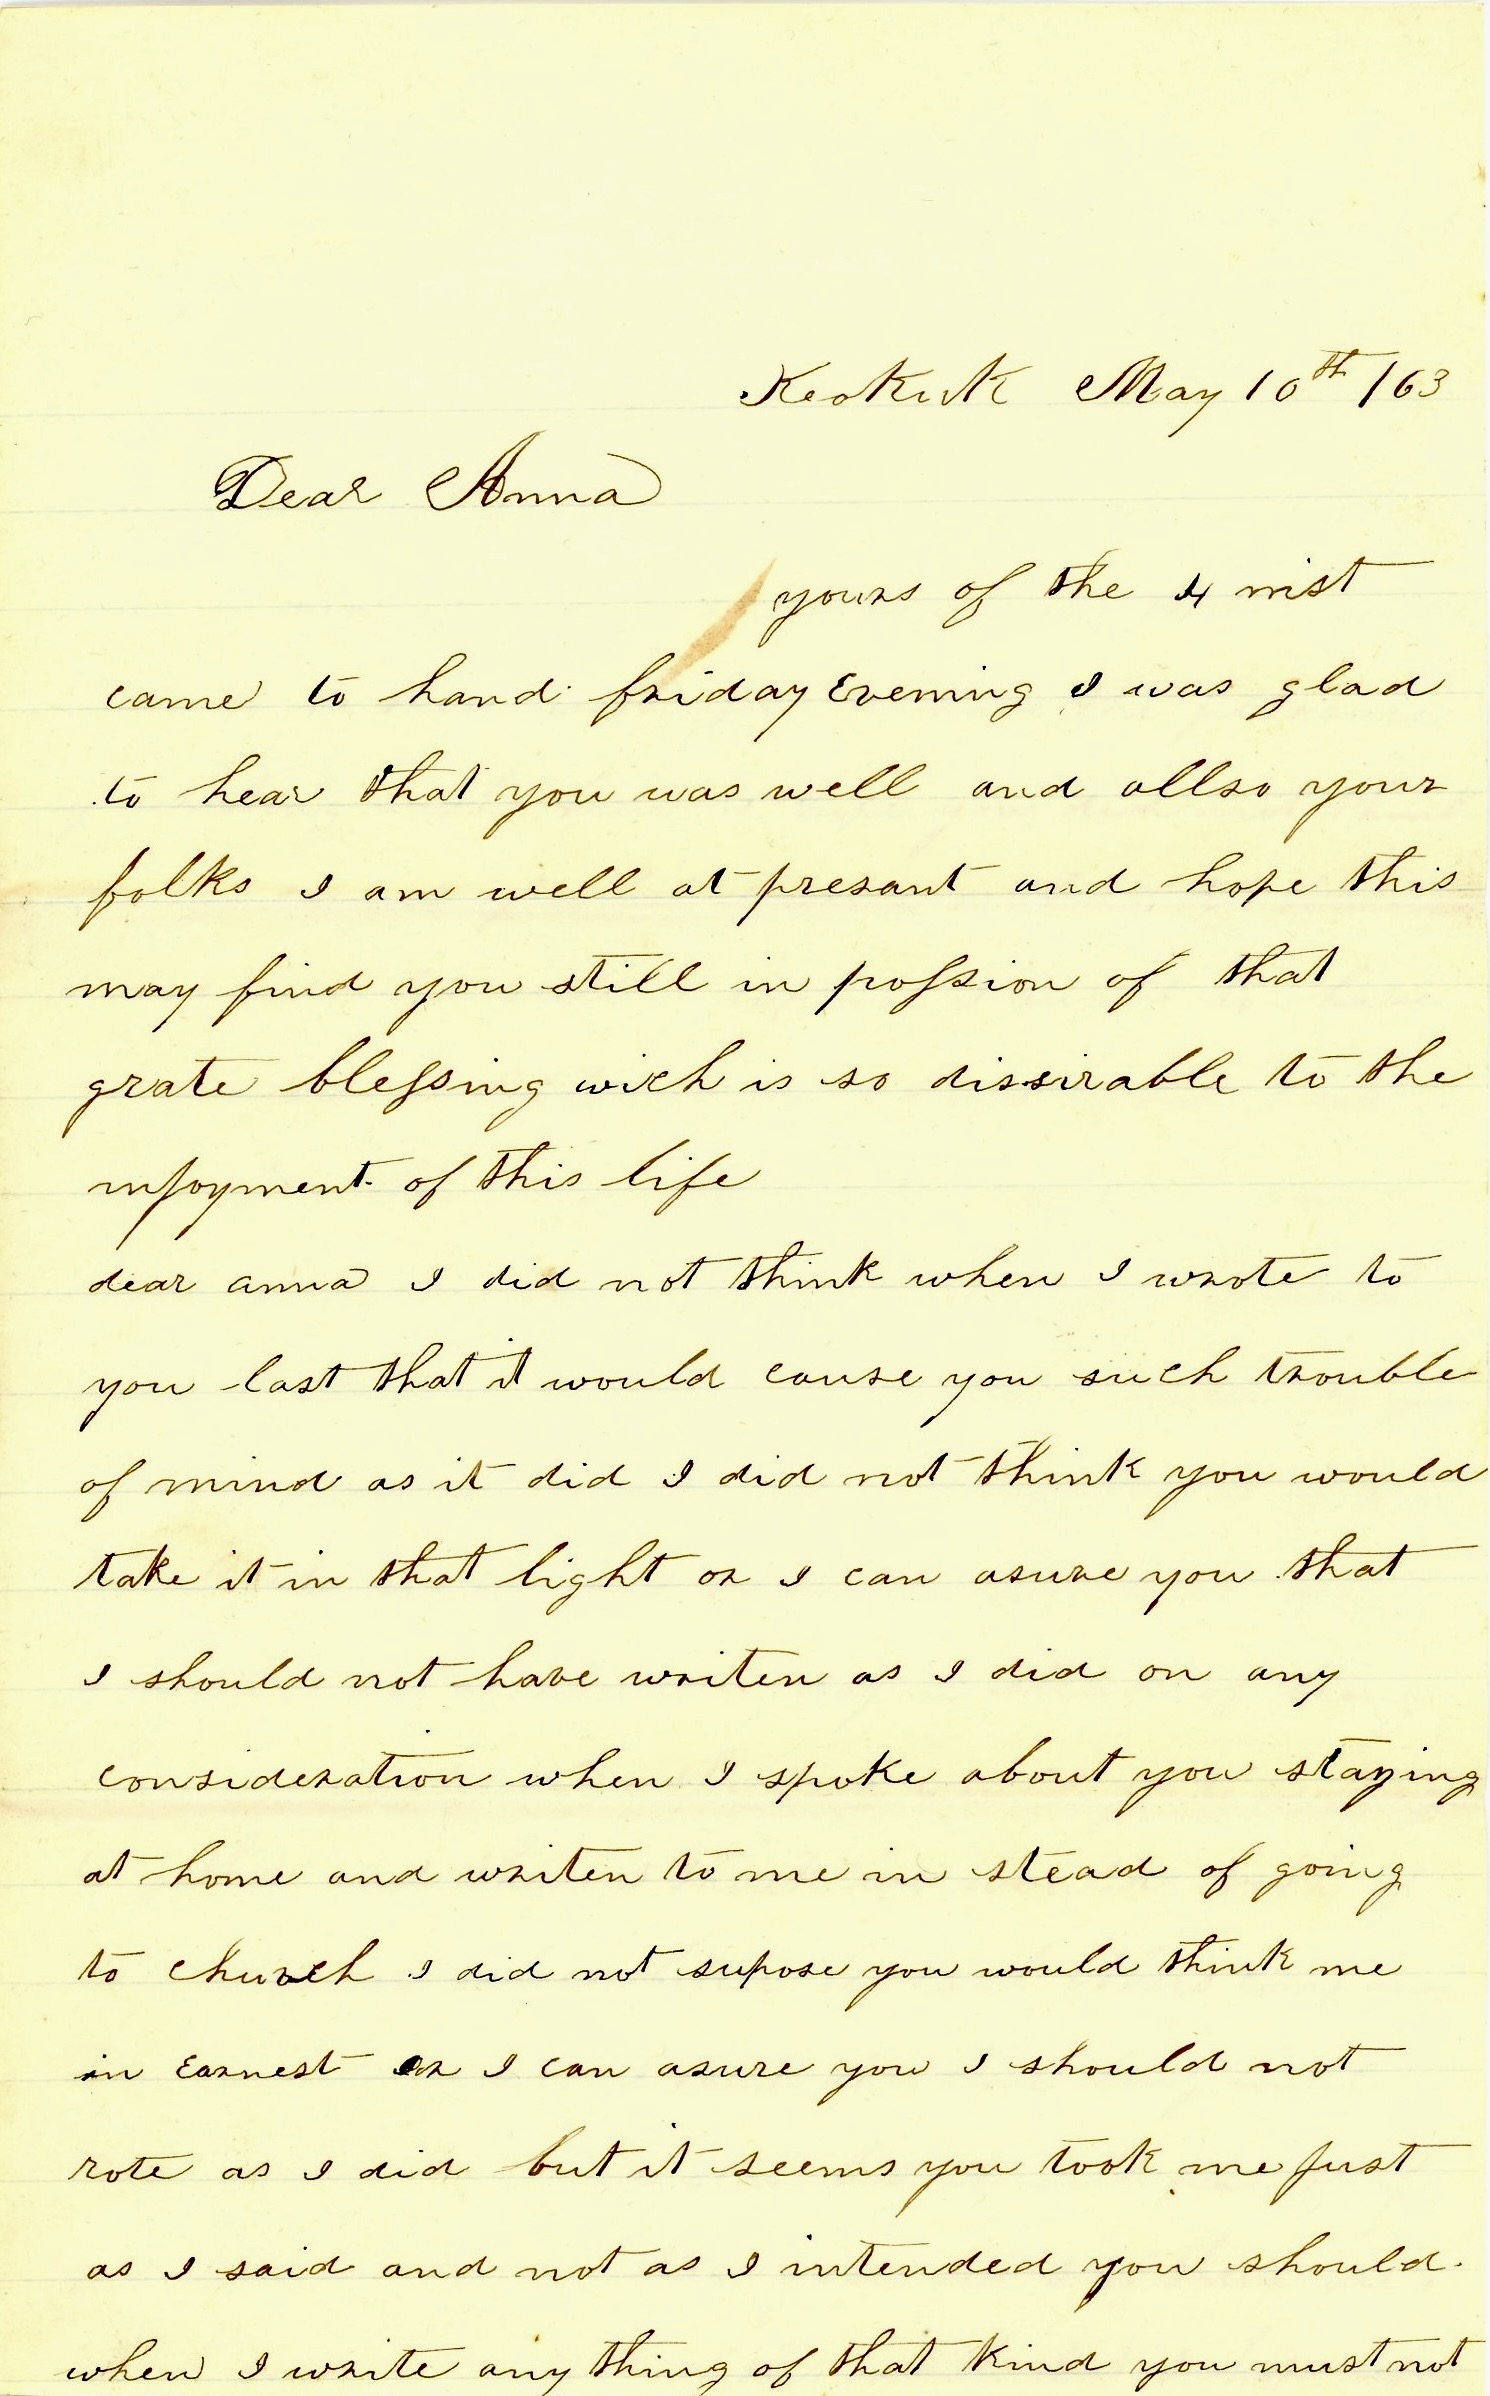 Keokuk May 10th /63
Dear Anna
yours of the 4 inst
came to hand friday Evening I was glad
to hear that you was well and allso your
folks I am well at presant and hope this
may find you still in possion of that
grate blessing wich is so dissirable to the
injoyment of this life
dear anna I did not think when I wrote to
you last that it would cause you such trouble
of mind as it did I did not think you would
take it in that light or I can asure you that
I should not have writen as I did on any
consideration when I spoke about you staying
at home and writen to me in stead of going
to church I did not supose you would think me
in Earnest or I can asure you I should not
rote as I did but it seems you took me just
as I said and not as I intended you should.
when I write any thing of that kind you must not